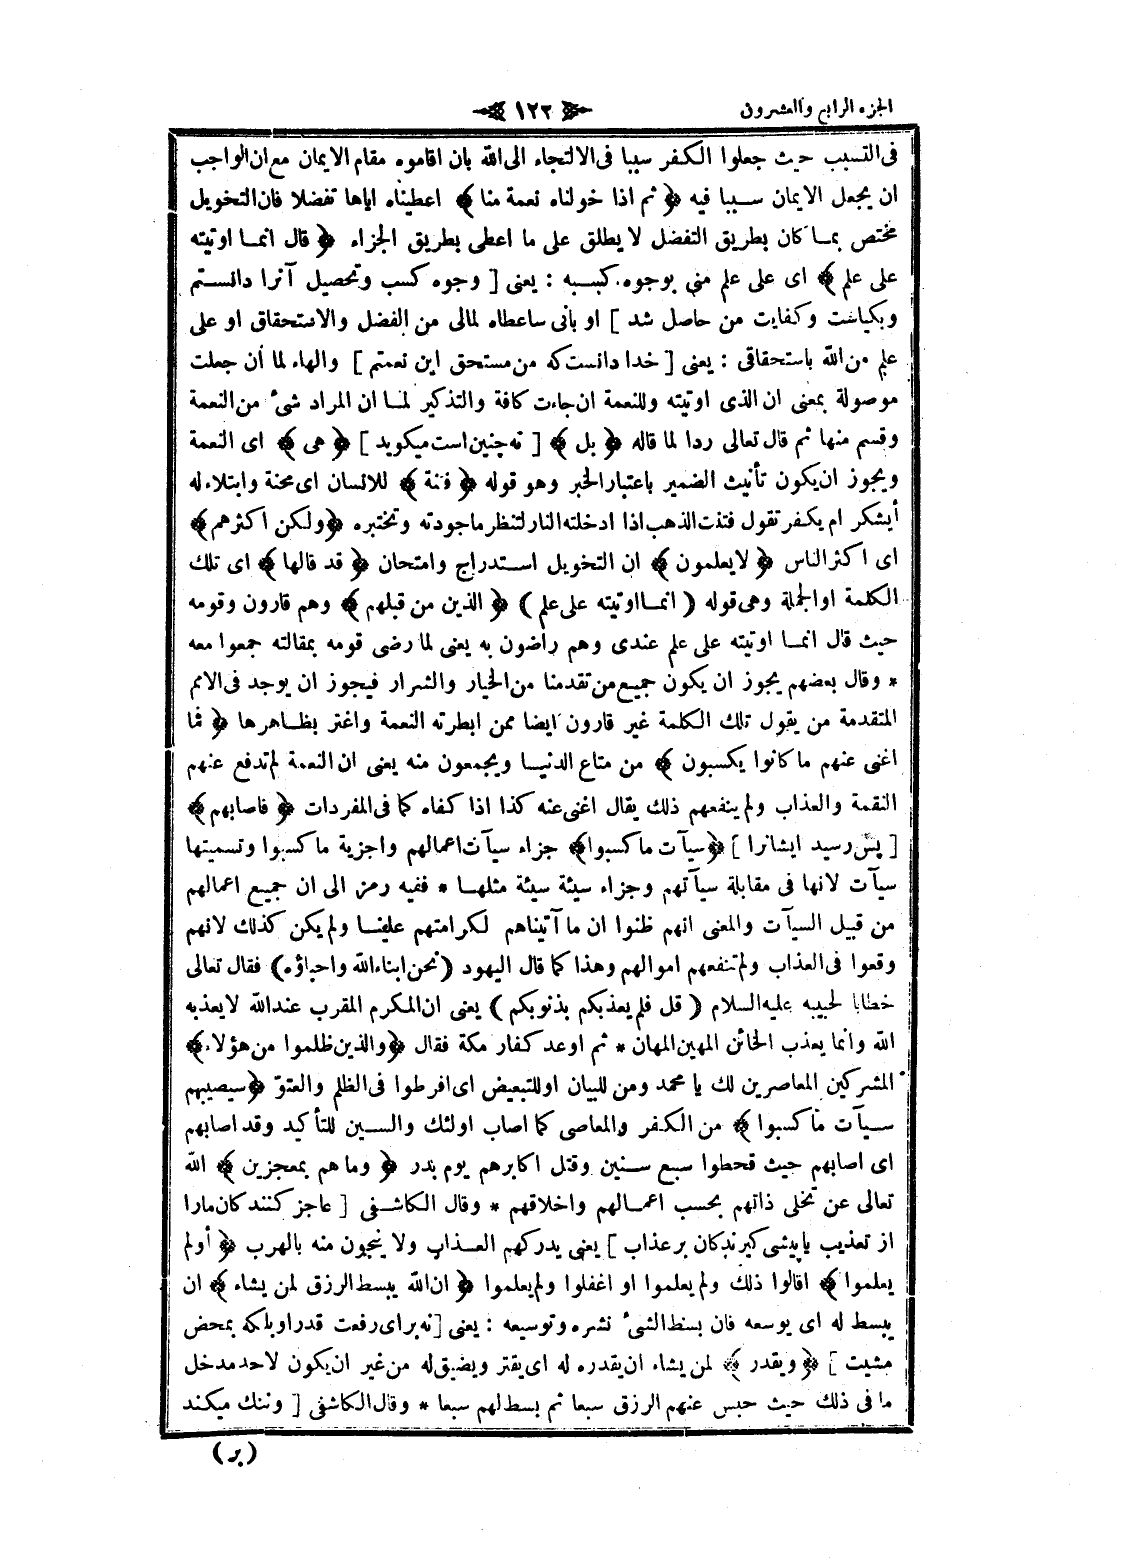 الجزء الرابع والعشرون
﴿ ١٢٢ ﴾
فى التسبب حيث جعلوا الكفر سببا فى الالتجاء الى الله بان اقاموه مقام الايمان مع ان الواجب
ان يجعل الايمان سببا فيه ﴿ ثم اذا خولناه نعمة منا ﴾ اعطيناه اياها تفضلا فان التخويل
مختص بما كان بطريق التفضل لا يطلق على ما اعطى بطريق الجزاء ﴿ قال انما اوتيته
على علم ﴾ اى على علم منى بوجوه كسبه : يعنى [ وجوه كسب وتحصيل آنرا دانستم
وبكياست وكفايت من حاصل شد ] او بأنى ساعطاه لمالى من الفضل والاستحقاق او على
علم من الله باستحقاقى : يعنى [ خدا دانست كه من مستحق اين نعمتم ] والهاء لما أن جعلت
موصولة بمعنى ان الذى اوتيته وللنعمة ان جاءت كافة والتذكير لما ان المراد شىء من النعمة
وقسم منها ثم قال تعالى ردا لما قاله ﴿ بل ﴾ [ نه چنين است ميكويد ] ﴿ هى ﴾ اى النعمة
ويجوز ان يكون تأنيث الضمير باعتبار الخبر وهو قوله ﴿ فتنة ﴾ للانسان اى محنة وابتلاء له
أيشكر ام يكفر تقول فتنت الذهب اذا ادخلته النار لتنظر ما جودته وتختبره ﴿ ولكن اكثرهم ﴾
اى اكثر الناس ﴿ لا يعلمون ﴾ ان التخويل استدراج وامتحان ﴿ قد قالها ﴾ اى تلك
الكلمة او الجملة وهى قوله ( انما اوتيته على علم ) ﴿ الذين من قبلهم ﴾ وهم قارون وقومه
حيث قال انما اوتيته على علم عندى وهم راضون به يعنى لما رضى قومه بمقالته جمعوا معه
* وقال بعضهم يجوز ان يكون جميع من تقدمنا من الخيار والشرار فيجوز ان يوجد فى الامم
المتقدمة من يقول تلك الكلمة غير قارون ايضا ممن ابطرته النعمة واغتر بظاهرها ﴿ فما
اغنى عنهم ما كانوا يكسبون ﴾ من متاع الدنيا ويجمعون منه يعنى ان النعمة لم تدفع عنهم
النقمة والعذاب ولم ينفعهم ذلك يقال اغنى عنه كذا اذا كفاه كما فى المفردات ﴿ فاصابهم ﴾
[ پس رسيد ايشانرا ] ﴿ سيآت ما كسبوا ﴾ جزاء سيآت اعمالهم واجزية ما كسبوا وتسميتها
سيآت لانها فى مقابلة سيآتهم وجزاء سيئة سيئة مثلها * ففيه رمز الى ان جميع اعمالهم
من قبيل السيآت والمعنى انهم ظنوا ان ما آتيناهم لكرامتهم علينا ولم يكن كذلك لانهم
وقعوا فى العذاب ولم تنفعهم اموالهم وهذا كما قال اليهود ( نحن ابناء الله واحباؤه ) فقال تعالى
خطابا لحبيبه عليه السلام ( قل فلم يعذبكم بذنوبكم ) يعنى ان المكرم المقرب عند الله لا يعذبه
الله وانما يعذب الخائن المهين المهان * ثم اوعد كفار مكة فقال ﴿ والذين ظلموا من هؤلاء ﴾
المشركين المعاصرين لك يا محمد ومن للبيان او للتبعيض اى افرطوا فى الظلم والعتوّ ﴿ سيصيبهم
سيآت ما كسبوا ﴾ من الكفر والمعاصى كما اصاب اولئك والسين للتأكيد وقد اصابهم
اى اصابهم حيث قحطوا سبع سنين وقتل اكابرهم يوم بدر ﴿ وما هم بمعجزين ﴾ الله
تعالى عن تخلى ذاتهم بحسب اعمالهم واخلاقهم * وقال الكاشفى [ عاجز كنند كان مارا
از تعذيب يا پيشى كيرندكان بر عذاب ] يعنى يدركهم العذاب ولا ينجون منه بالهرب ﴿ أولم
يعلموا ﴾ اقالوا ذلك ولم يعلموا او اغفلوا ولم يعلموا ﴿ ان الله يبسط الرزق لمن يشاء ﴾ ان
يبسط له اى يوسعه فان بسط الشىء نشره وتوسيعه : يعنى [ نه براى رفعت قدر او بلكه بمحض
مشيت ] ﴿ ويقدر ﴾ لمن يشاء ان يقدره له اى يقتر ويضيق له من غير ان يكون لاحد مدخل
ما فى ذلك حيث حبس عنهم الرزق سبعا ثم بسط لهم سبعا * وقال الكاشفى [ وتنك ميكند
( بر )